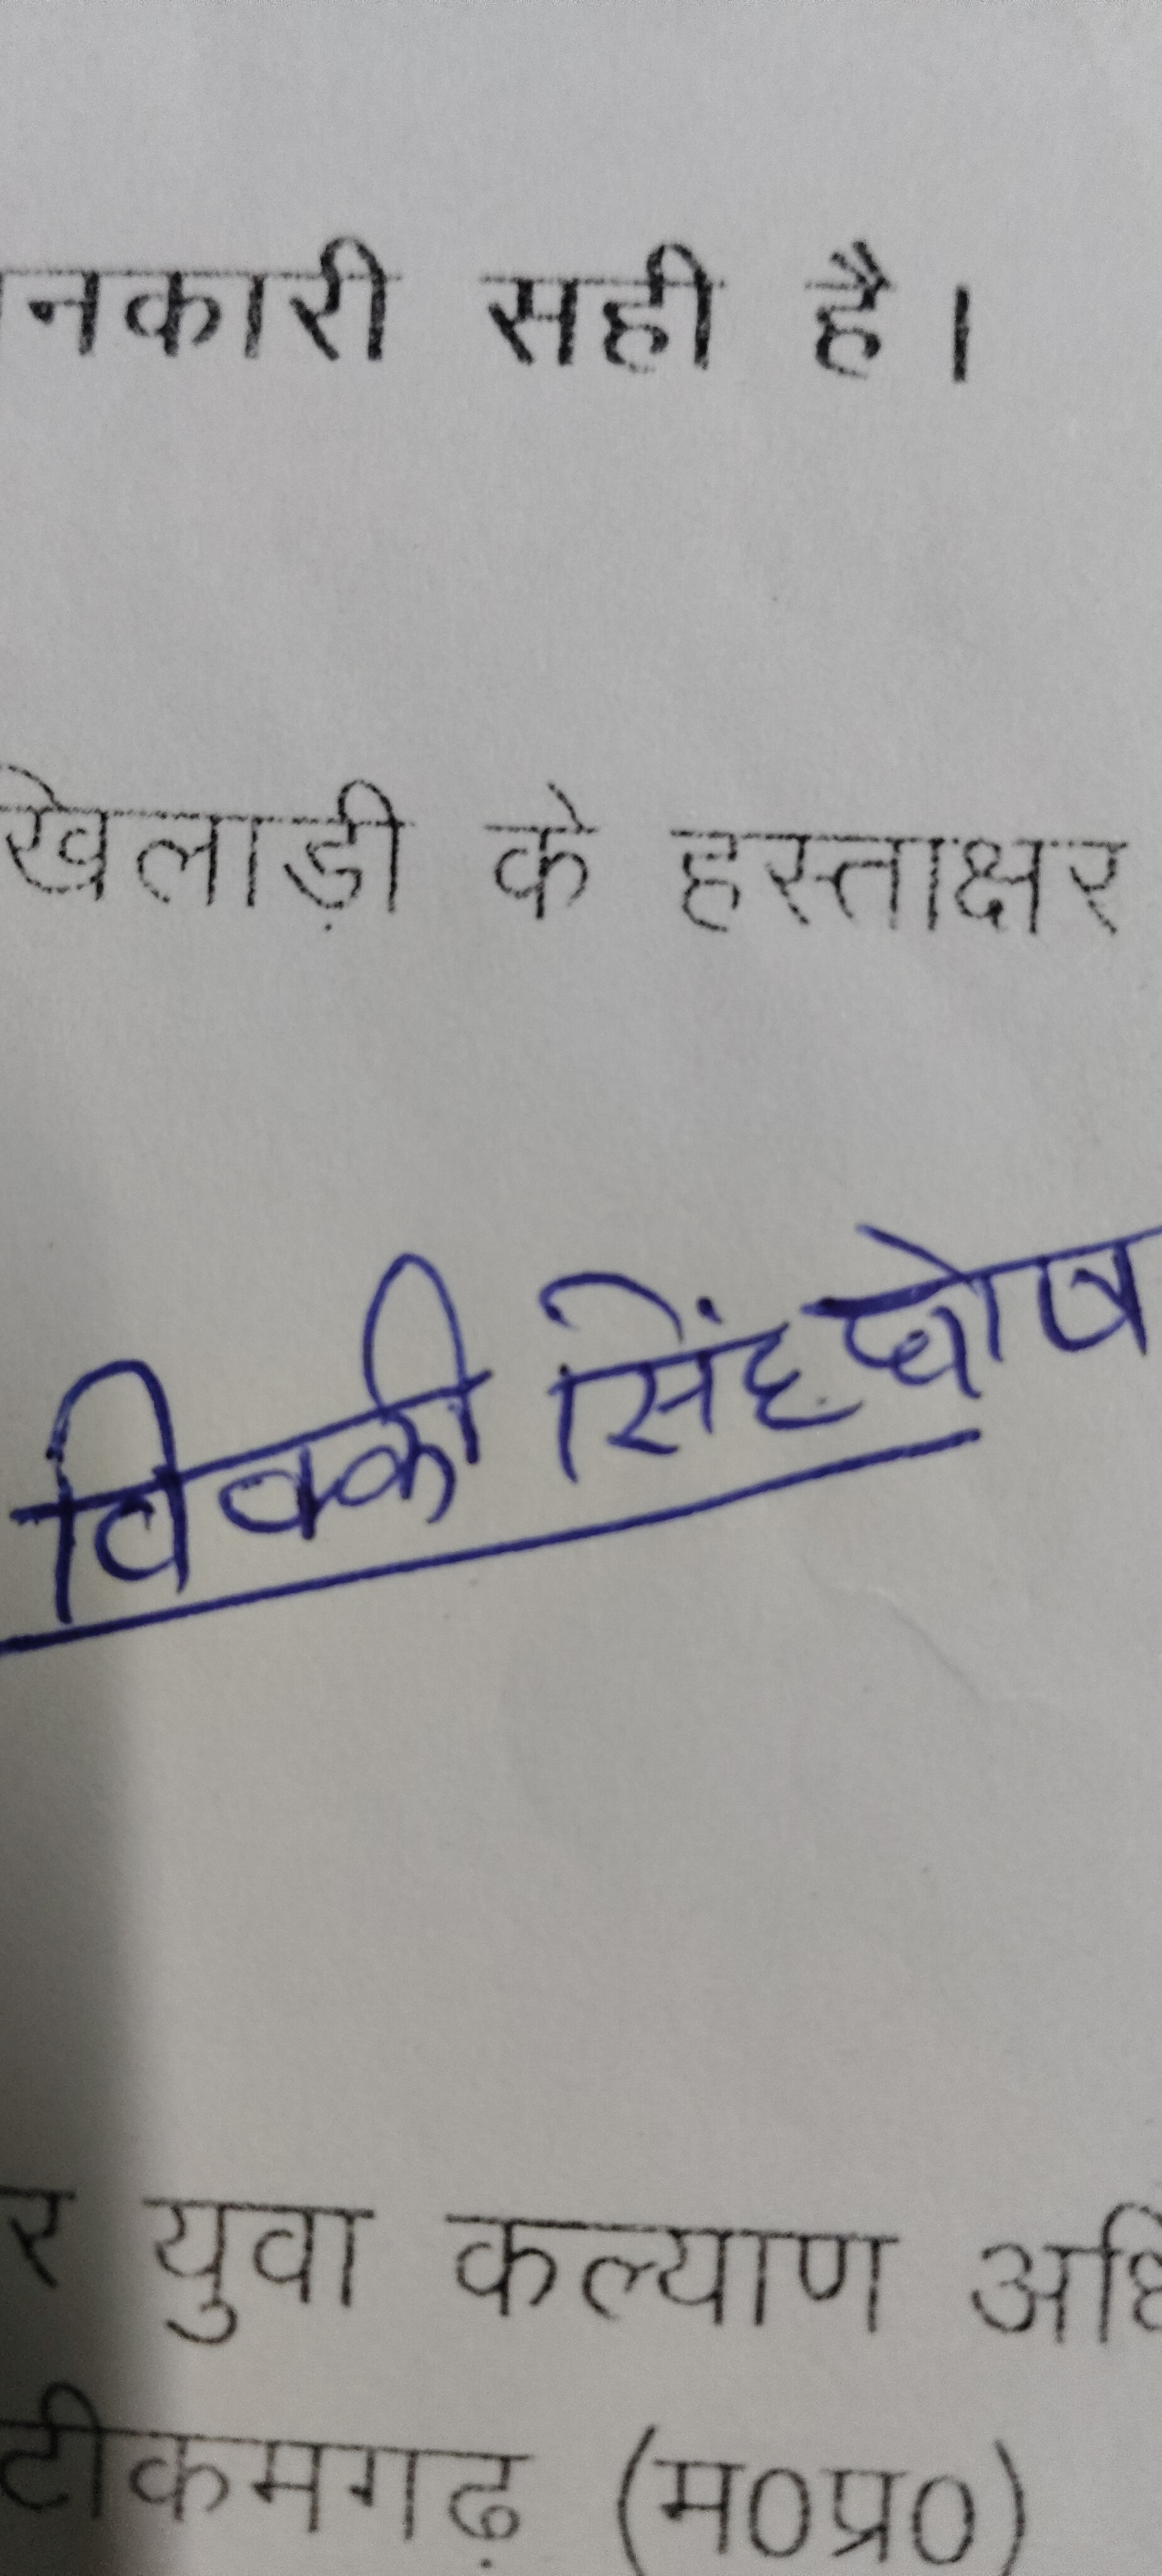 नकारी सही है।
खिलाड़ी के हस्ताक्षर
विक्की सिंह घोष
र युवा कल्याण अधि
टीकमगढ़ (म०प्र०)